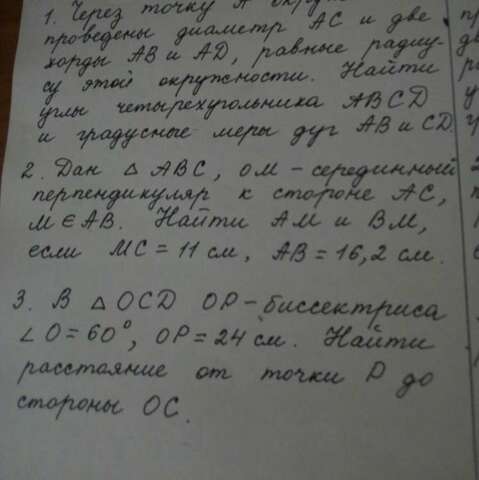 1. Через точку А
проведены диаметр АС и две
хорды АВ и АD, равные радиу-
су этой окружности. Найти
углы четырехугольника ABCD
и градусные меры дуг АВ и CD.
2. Дан △ АВС, ОМ - серединный
перпендикуляр к стороне АС,
М ∈ АВ. Найти АМ и ВМ,
если МС = 11 см, АВ = 16,2 см.
3. В △ OCD OP - биссектриса
∠O = 60°, OP = 24 см. Найти
расстояние от точки P до
стороны OC.